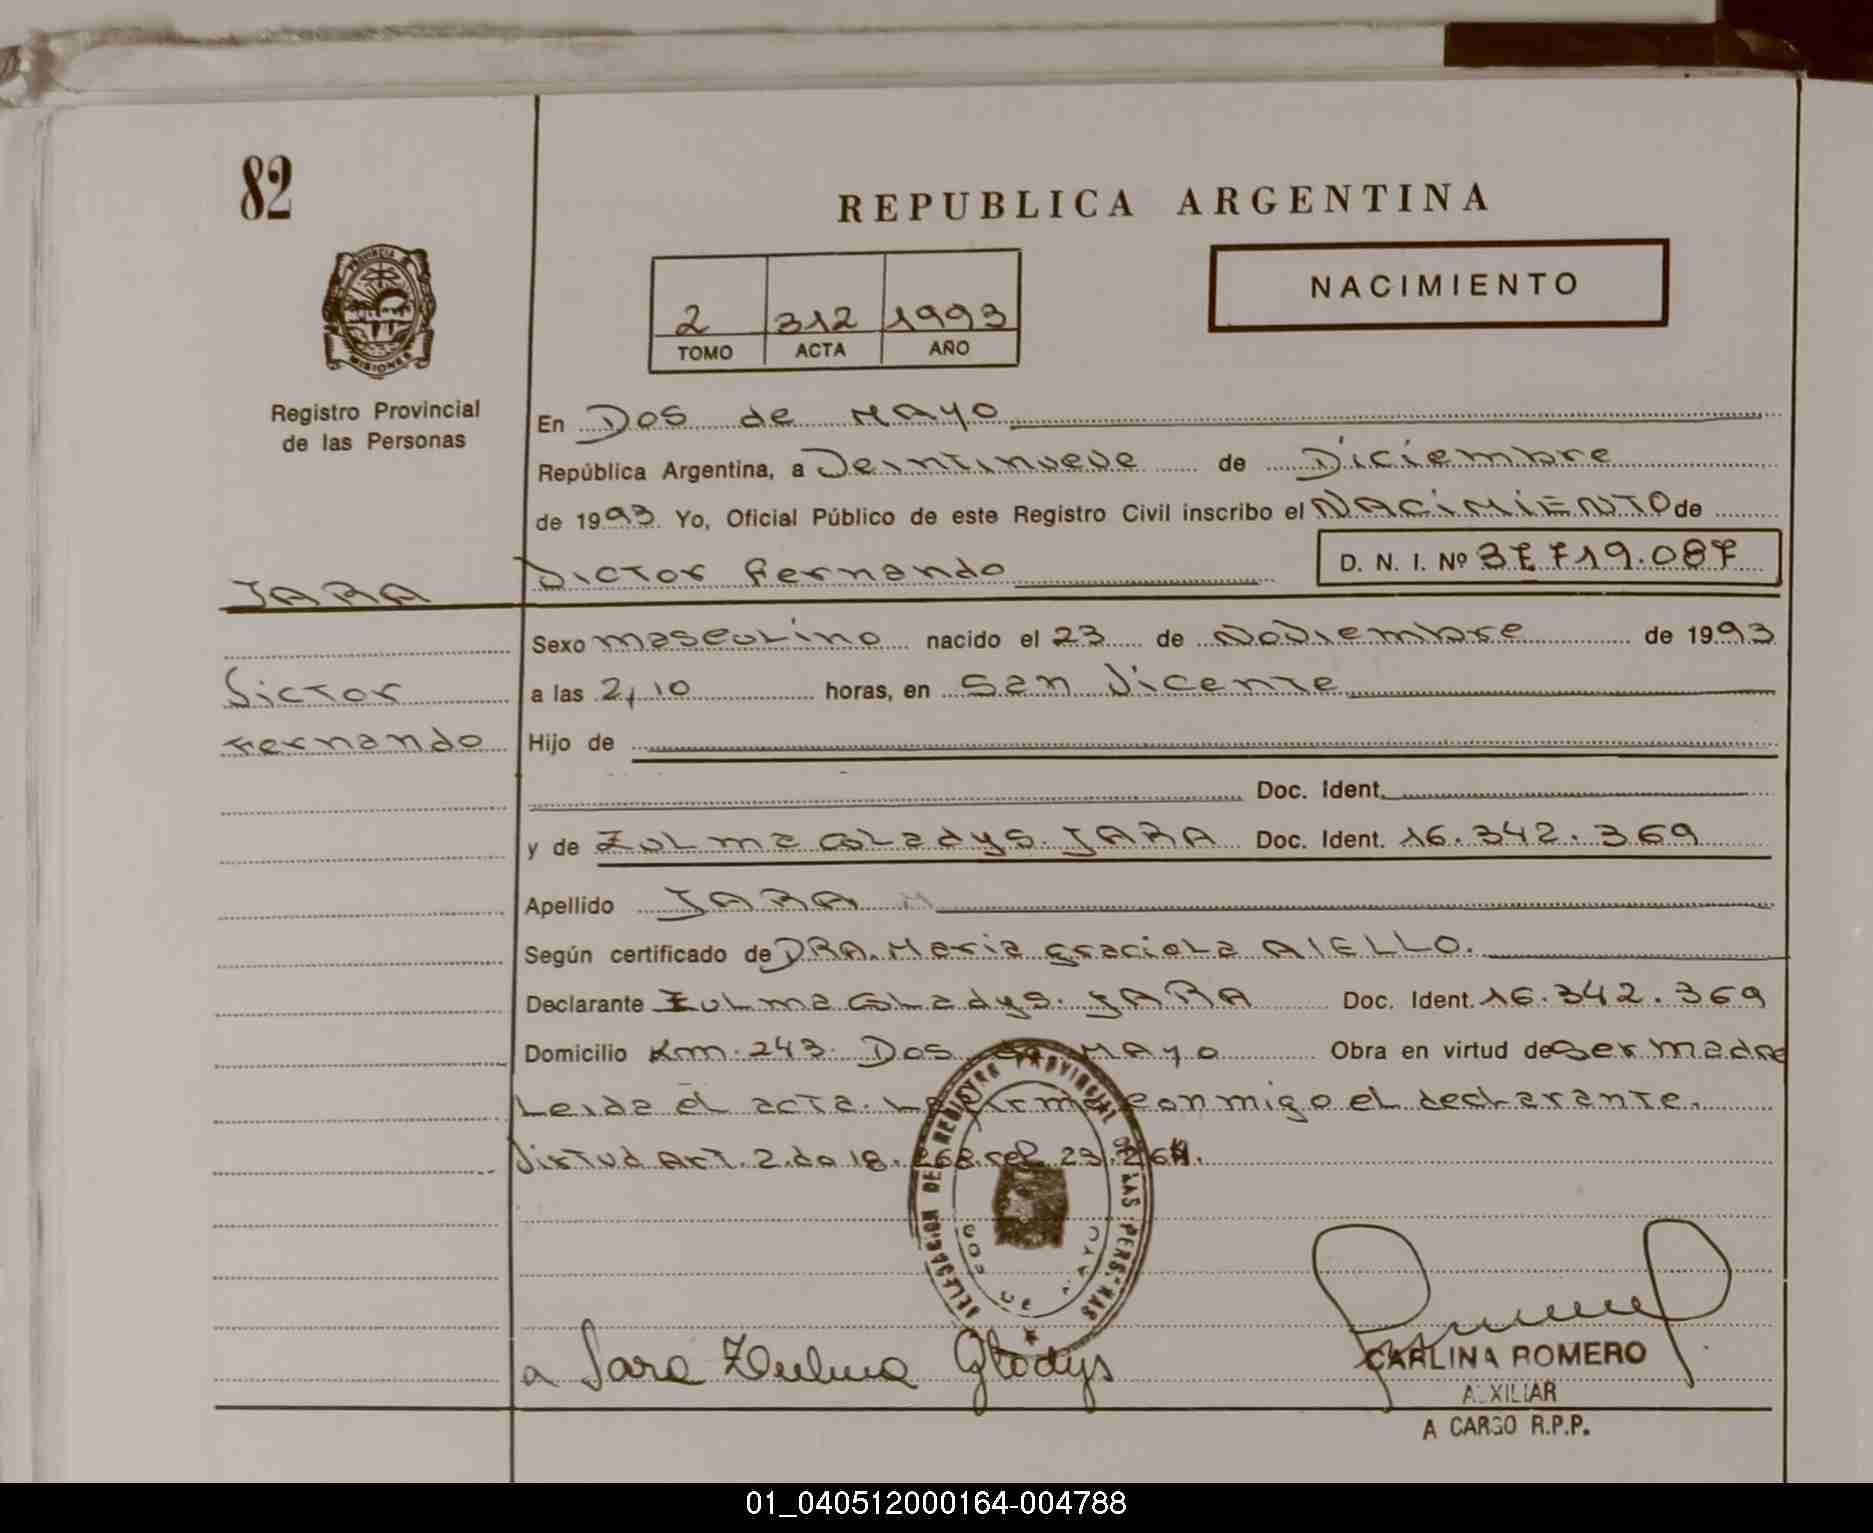 82
REPUBLICA ARGENTINA
NACIMIENTO
2 312 1993
TOMO ACTA AÑO
PROVINCIA DE
MISIONES
Registro Provincial
de las Personas
En Dos de Mayo
República Argentina, a Veintinueve de Diciembre
de 1993 Yo, Oficial Público de este Registro Civil inscribo el NACIMIENTO de
JARA Victor Fernando D. N. I. Nº 37.719.087
Sexo masculino nacido el 23 de Noviembre de 1993
Victor a las 2,10 horas, en San Vicente
Fernando Hijo de
Doc. Ident.
y de Zulma Gladys JARA Doc. Ident. 16.342.369
Apellido JARA
Según certificado de DRA. Maria Graciela AIELLO.
Declarante Zulma Gladys JARA Doc. Ident. 16.342.369
Domicilio Km. 243. Dos de Mayo Obra en virtud de ser madre
Leida el acta. La firma conmigo el declarante.
Virtud Art. 2. do 18.
DELEGACION DEL REGISTRO PROVINCIAL DE LAS PERSONAS
DOS DE MAYO
a Jara Zulma Gladys
CARLINA ROMERO
AUXILIAR
A CARGO R.P.P.
01_040512000164-004788